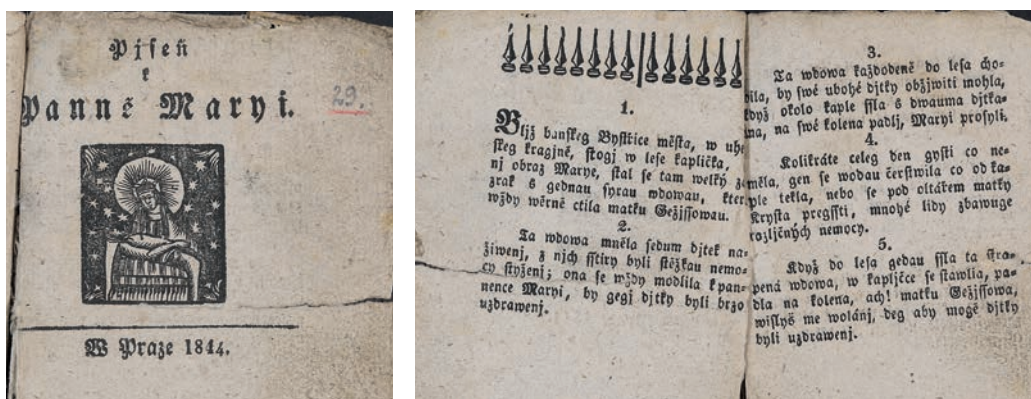 Pjseň
k
Panně Maryi.
29.
W Praze 1844.
1.
Bljž banskeg Bystřice města, w uhe
skeg kragjně, stogj w lese kaplička,
nj obraz Marye, stal se tam welký zá
zrak s gednau syrau wdowau, kter
wždy wěrně ctila matku Gežjssowau.
2.
Ta wdowa mněla sedum djtek na=
žiwenj, z njch sstiry byli stěžkau nemo=
cy styženj; ona se wždy modlila k pan=
nence Maryi, by gegj djtky byli brzo
uzdrawenj.
3.
Ta wdowa každodeně do lesa cho=
dila, by swé ubohé djtky obžjwiti mohla,
když okolo kaple ssla s dwauma djtka=
ma, na swé kolena padlj, Maryi prosyli.
4.
Kolikráte celeg den gysti co ne=
měla, gen se wodau čerstwila co od ka=
ple tekla, nebo se pod oltářem matky
Krysta pregssti, mnohé lidy zbawuge
rozljčných nemocy.
5.
Když do lesa gedau ssla ta stra=
pená wdowa, w kapljčce se stawlia, pa=
dla na kolena, ach! matku Gežjssowa,
wislyš me wolánj, deg aby mogě djtky
byli uzdrawenj.